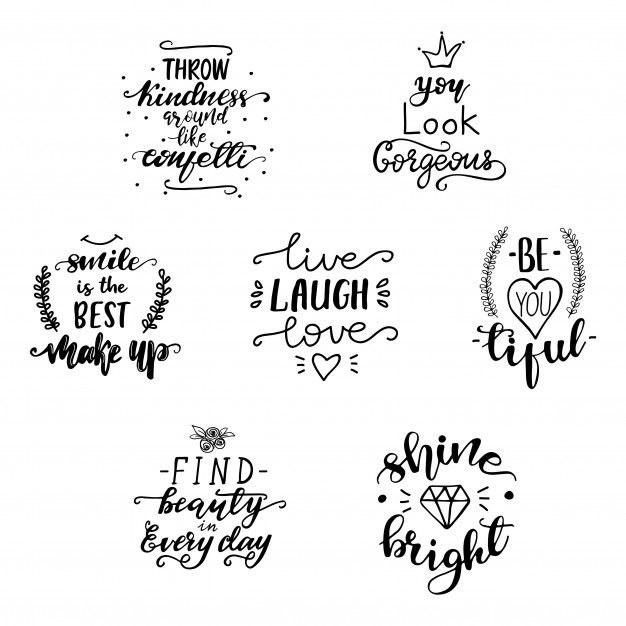 THROW
Kindness
around
like
confetti
you
Look
Gorgeous
smile
is the
BEST
make up
live
LAUGH
love
-BE-
YOU
-tiful-
-FIND-
beauty
in
Every day
shine
bright